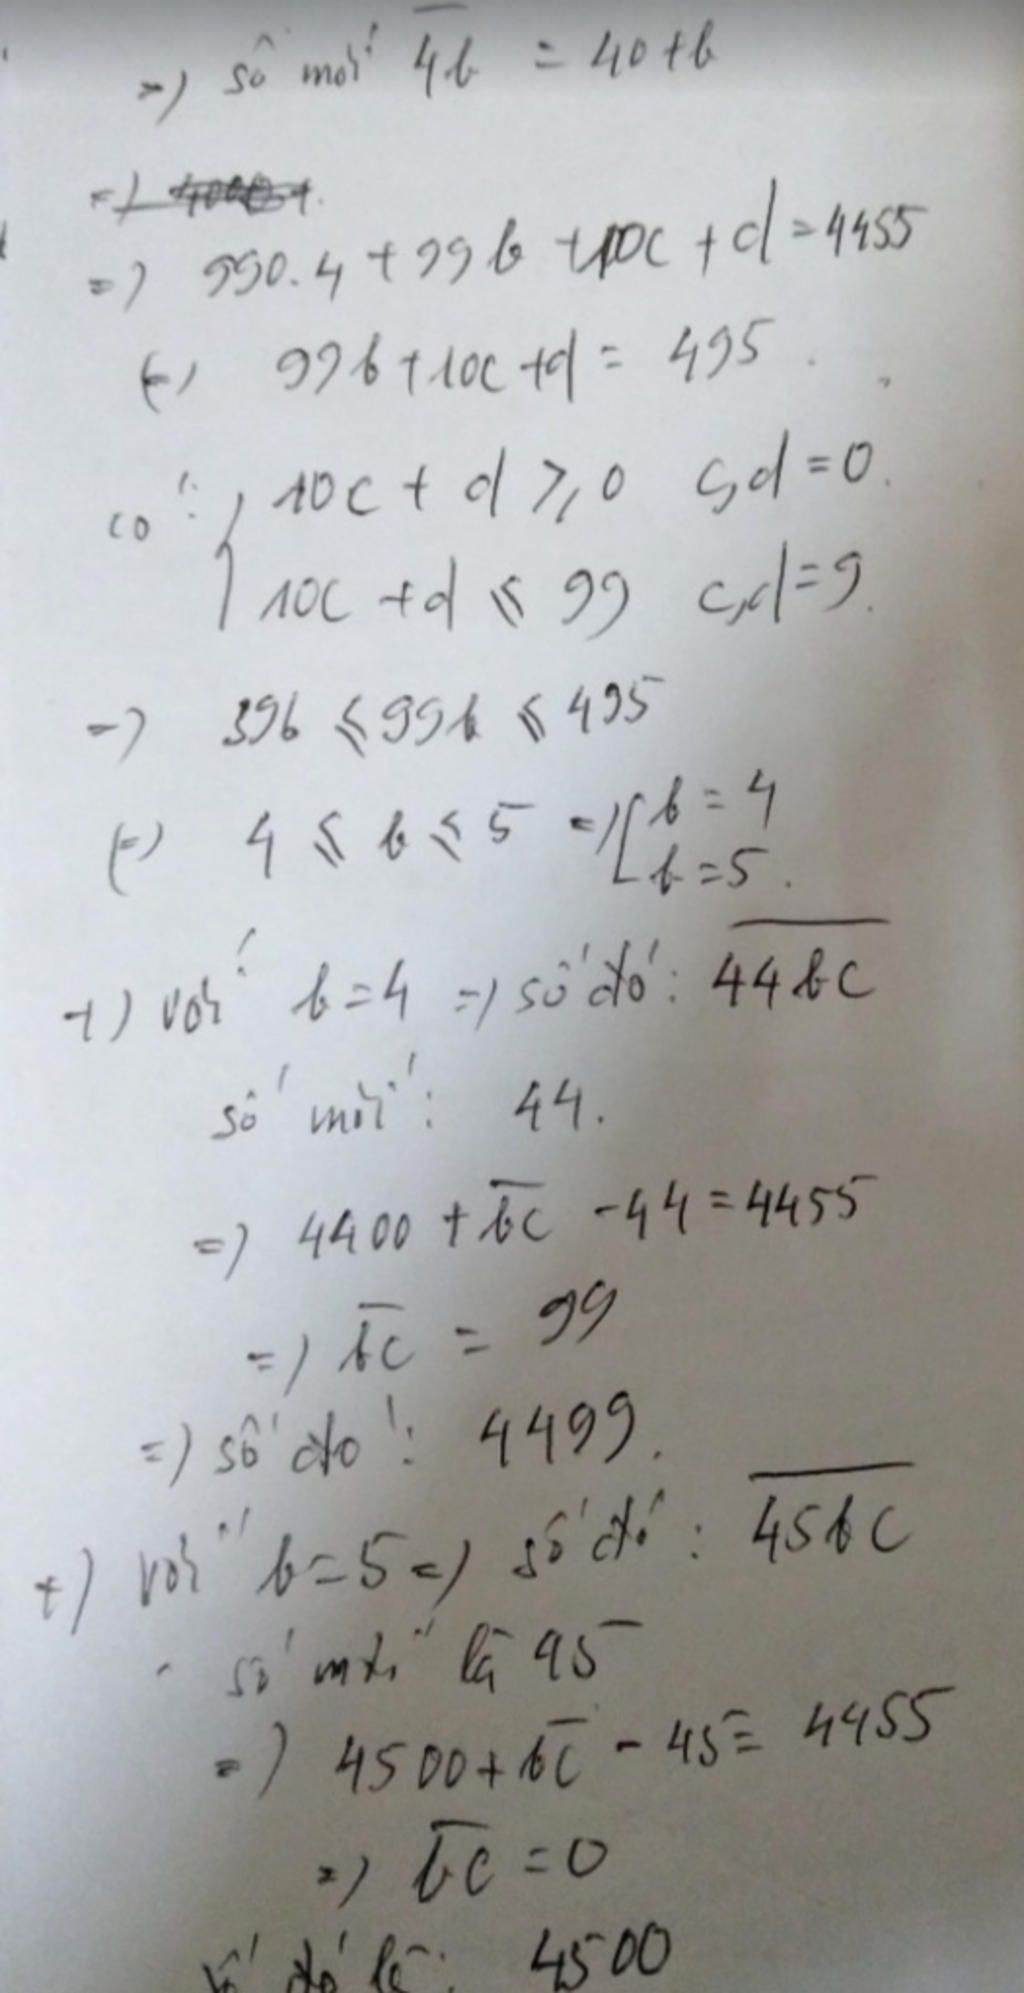 =) số mới 4b = 40+b
=)
=) 990.4 + 99b + 10c + d = 4455
(=) 99b + 10c + d = 495.
có: 10c + d ⩾ 0 c,d = 0.
10c + d ⩽ 99 c,d = 9.
=) 396 ⩽ 99b ⩽ 495
(=) 4 ⩽ b ⩽ 5 =) [ b = 4
b = 5.
+) với b = 4 =) số đó: 44bc
số mới: 44.
=) 4400 + bc - 44 = 4455
=) bc = 99
=) số đó: 4499.
+) với b = 5 =) số đó: 45bc
số mới là 45
=) 4500 + bc - 45 = 4455
=) bc = 0
số đó là: 4500